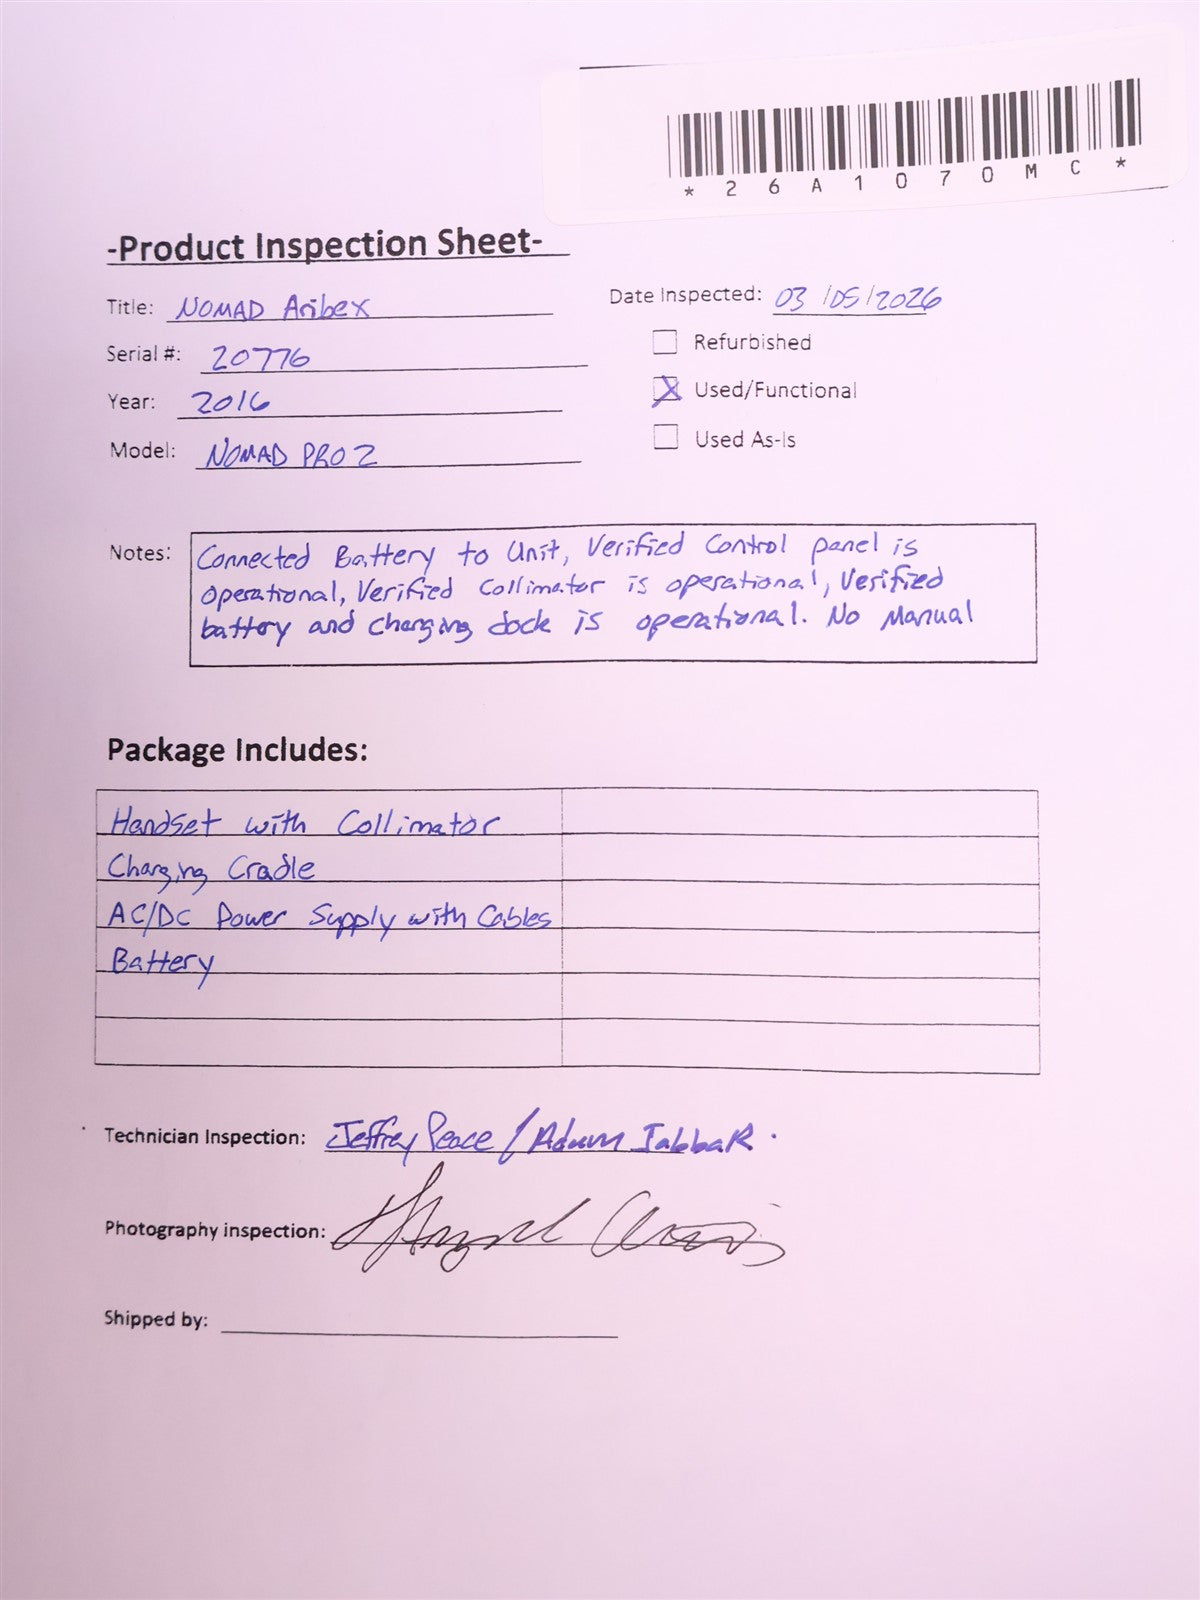 *26A1070MC*
-Product Inspection Sheet-
Title: NOMAD Aribex
Date Inspected: 03/05/2026
Serial #: 20776
Refurbished
Year: 2016
Used/Functional
Model: NOMAD PRO 2
Used As-Is
Notes: Connected Battery to Unit, Verified Control panel is
operational, Verified Collimator is operational, Verified
battery and charging dock is operational. No Manual
Package Includes:
Handset with Collimator
Charging Cradle
AC/DC Power Supply with Cables
Battery
Technician Inspection: Jeffrey Peace / Adam Jabbar.
Photography inspection:
Shipped by: